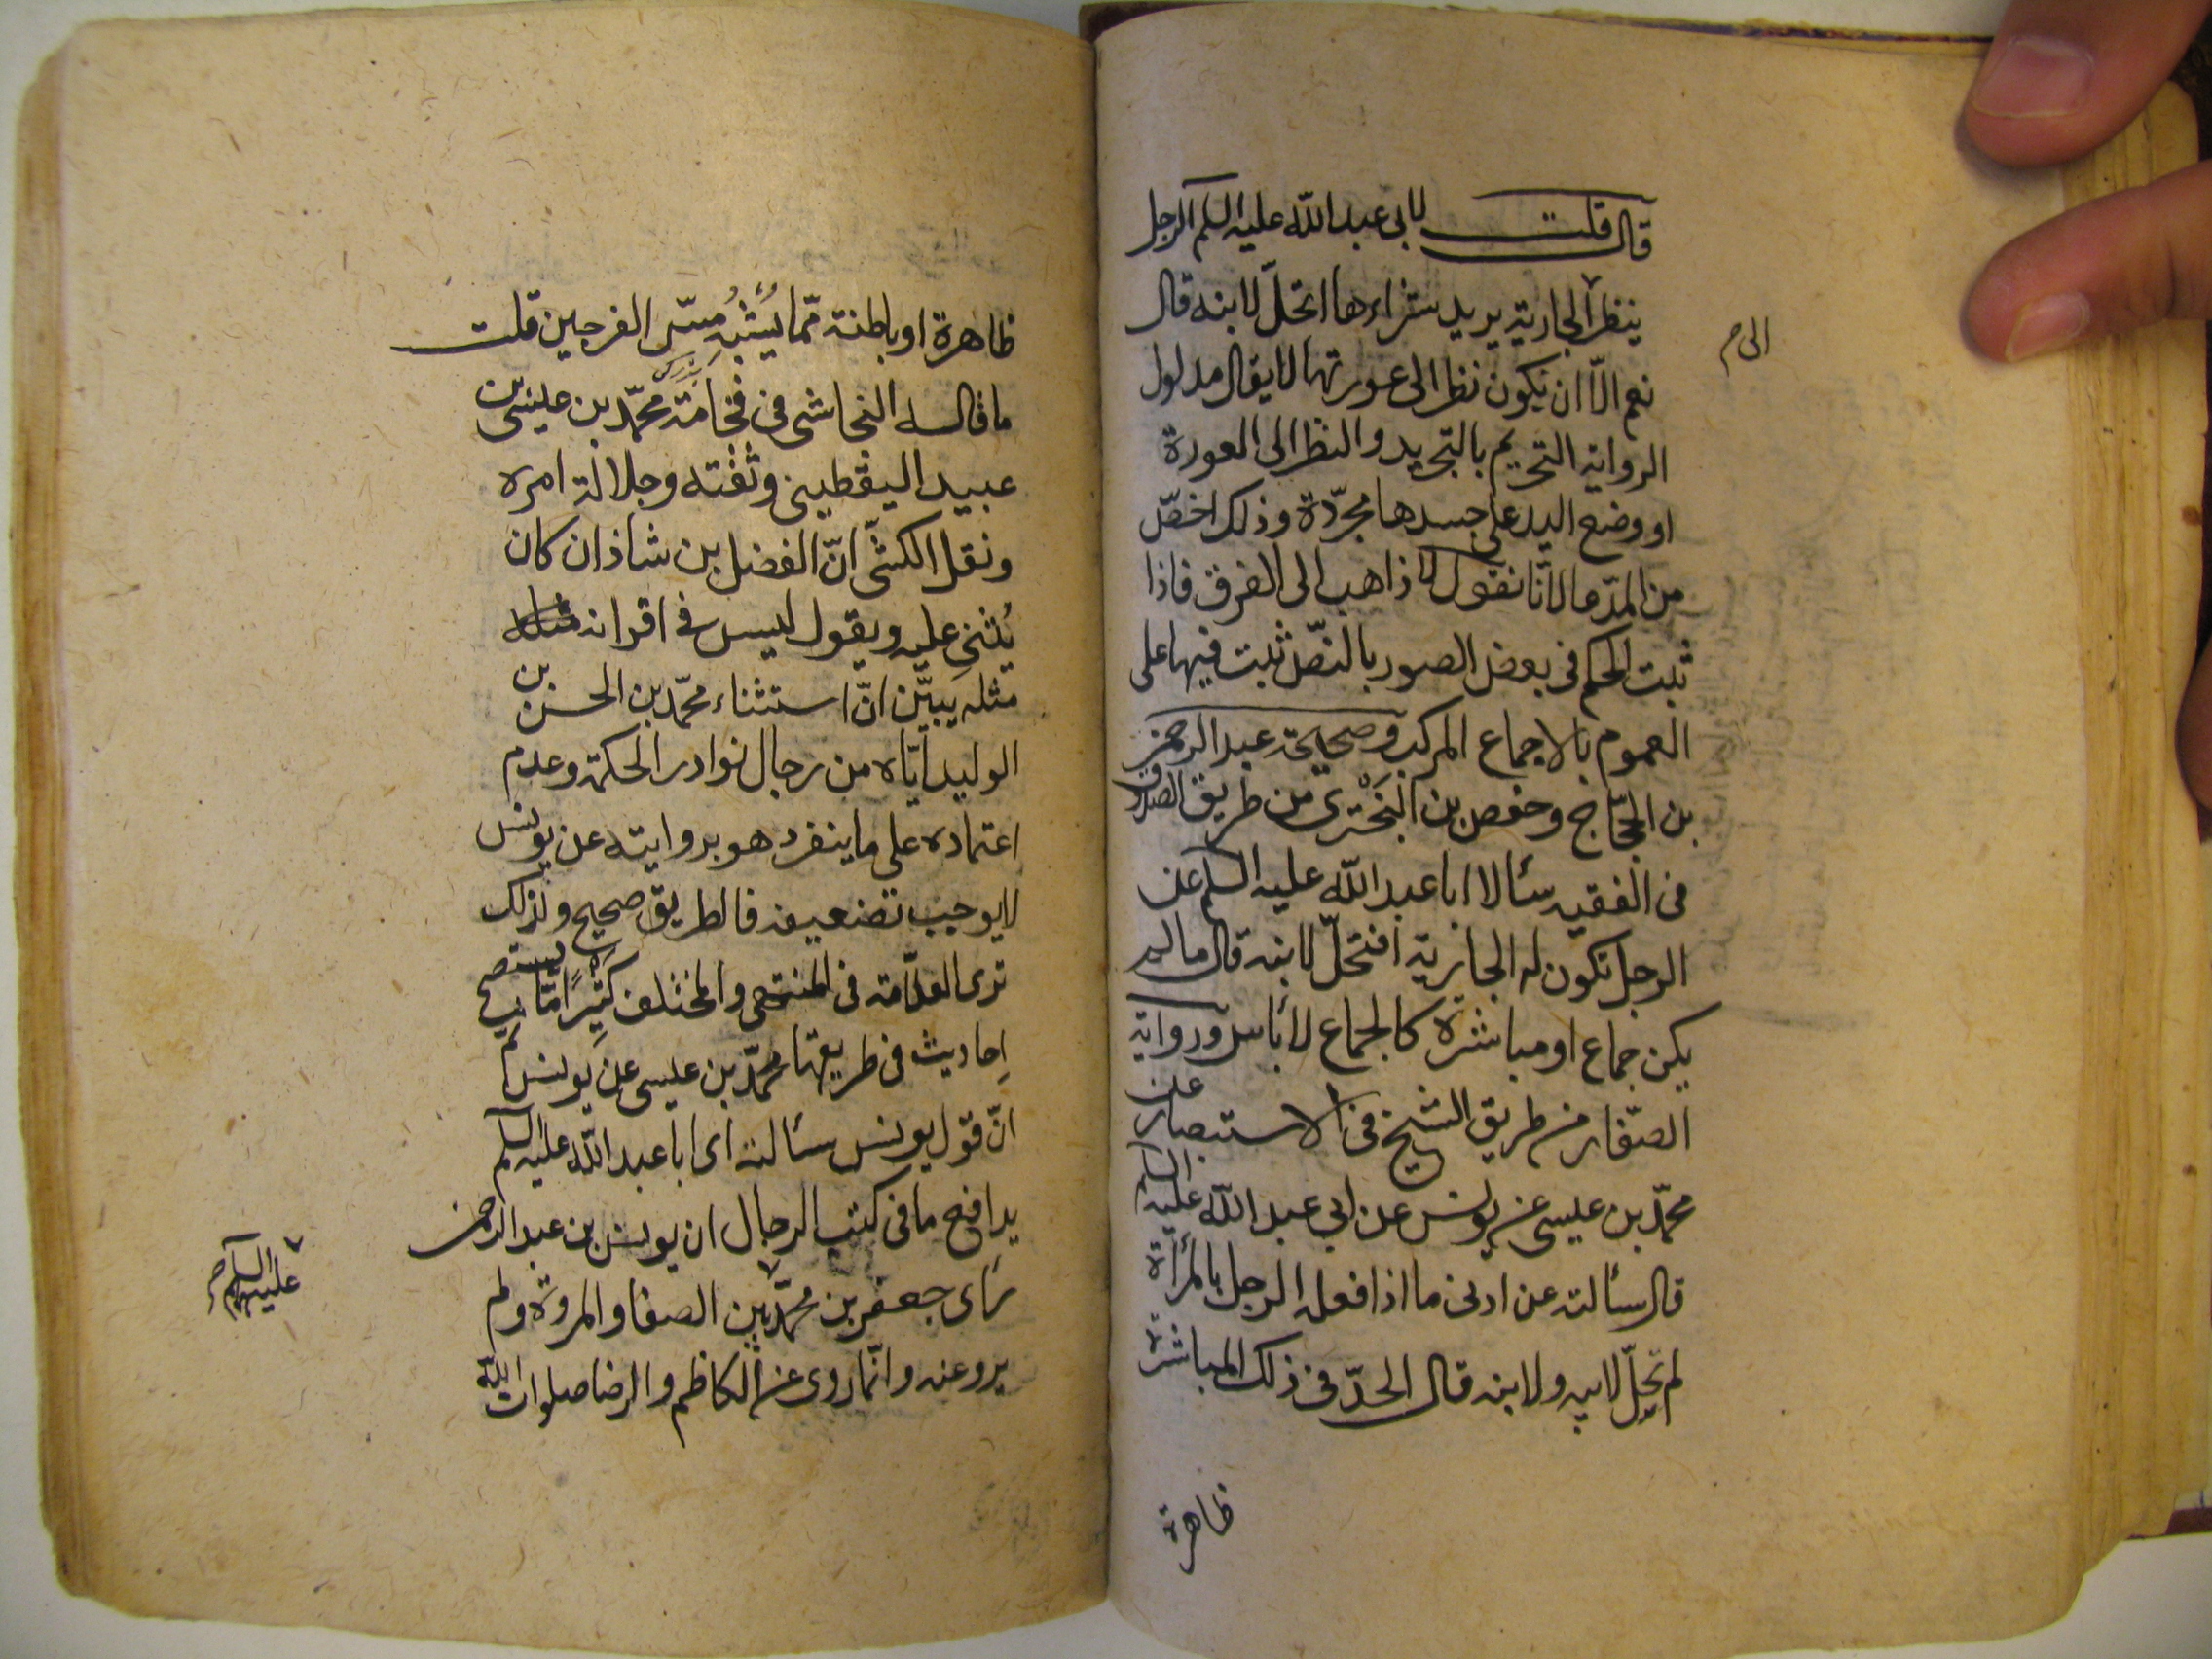 قال قلت لابى عبد الله عليه السلم الرجل
ينظر الجارية يريد شراءها اتحلّ لابنه قال
الى م
نعم الّا ان يكون نظر الى عورتها لا يقال مدلول
الرواية التحريم بالتجريد والنظر الى العورة
او وضع اليد على جسدها مجرّدة وذلك اخصّ
من المدّعى لانّا نقول لا ذاهب الى الفرق فاذا
ثبت الحكم فى بعض الصور بالنصّ ثبت فيها على
العموم بالاجماع المركب وصحيحة عبد الرحمن
بن الحجّاج وحفص بن البخترى من طريق الصدوق
فى الفقيه سئالا ابا عبد الله عليه السلم عن
الرجل تكون له الجارية افتحلّ لابنه قال ما لم
يكن جماع او مباشرة كالجماع لا بأس ورواية
الصفّار من طريق الشيخ فى الاستبصار عن
محمّد بن عيسى عن يونس عن ابي عبد الله عليه السلم
قال سئالته عن ادنى ما اذا فعله الرجل بالمرأة
لم تحلّ لابيه ولابنه قال الحدّ فى ذلك المباشرة
ظاهرة
ظاهرة او باطنة ممّا يُشْبِهُ مسّ الفرجين قلت
ما قاله النجاشى فى فخامة محمّد بن عيسى بن
عبيد اليقطينى وثقته وجلالة امره
ونقل الكشّى انّ الفضل بن شاذان كان
يُثنى عليه ويقول ليس فى اقرانه
مثله يبيّن انّ استثناء محمّد بن الحسن بن
الوليد ايّاه من رجال نوادر الحكمة وعدم
اعتماده على ما ينفرد هو بروايته عن يونس
لا يوجب تضعيفه فالطريق صحيح ولذلك
ترى العلّامة فى المنتهى والمختلف كثيرًا مّا يستصح
احاديث فى طريقها محمّد بن عيسى عن يونس ثم
انّ قول يونس سئالته اى ابا عبد الله عليه السلم
يدافع ما فى كتب الرجال ان يونس بن عبد الرحمن
رأى جعفر بن محمّد بين الصفا والمروة ولم
عليهما السلم م
يرو عنه وانّما روى عن الكاظم والرضا صلوات الله